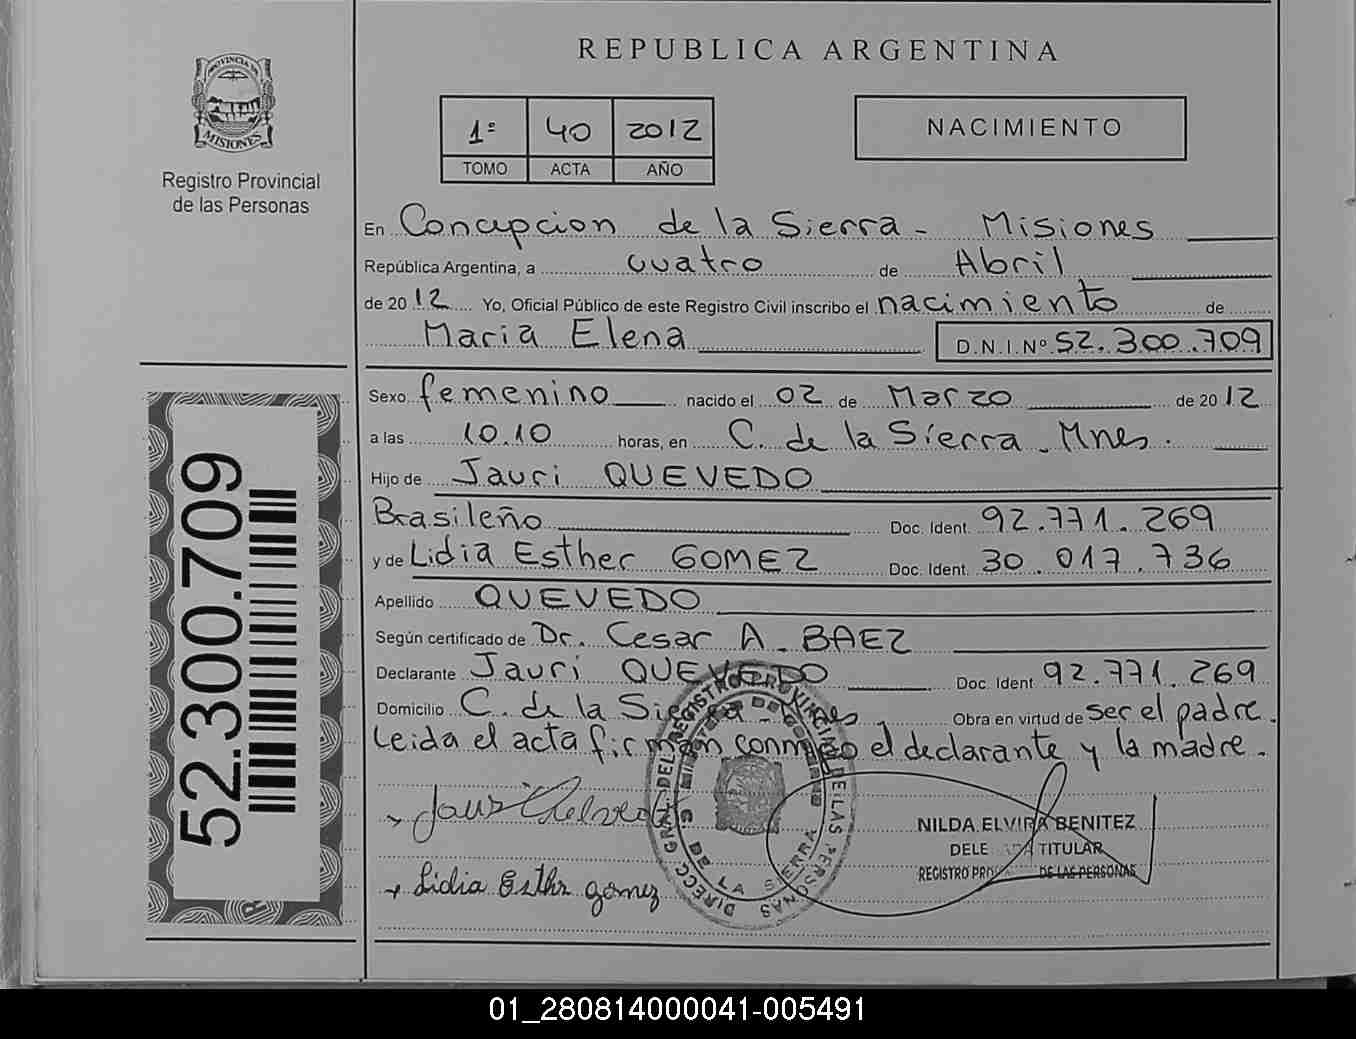 REPUBLICA ARGENTINA
PROVINCIA DE
MISIONES
Registro Provincial
de las Personas
1º 40 2012
TOMO ACTA AÑO
NACIMIENTO
En Concepcion de la Sierra - Misiones
República Argentina, a cuatro de Abril
de 2012 Yo, Oficial Público de este Registro Civil inscribo el nacimiento de
Maria Elena D.N.I.Nº 52.300.709
Sexo femenino nacido el 02 de Marzo de 2012
a las 10.10 horas, en C. de la Sierra - Mnes.
Hijo de Jauri QUEVEDO
Brasileño Doc. Ident. 92.771.269
y de Lidia Esther GOMEZ Doc. Ident. 30.017.736
Apellido QUEVEDO
Según certificado de Dr. Cesar A. BAEZ
Declarante Jauri QUEVEDO Doc. Ident 92.771.269
Domicilio C. de la Sierra - Mnes. Obra en virtud de ser el padre.
Leida el acta firman conmigo el declarante y la madre.
Jauri Quevedo
Lidia Esther gomez
DIRECC. GRAL. DEL REGISTRO PROVINCIAL DE LAS PERSONAS
DE LA SIERRA
NILDA ELVIRA BENITEZ
TITULAR
REGISTRO DE LAS PERSONAS
52.300.709
01_280814000041-005491